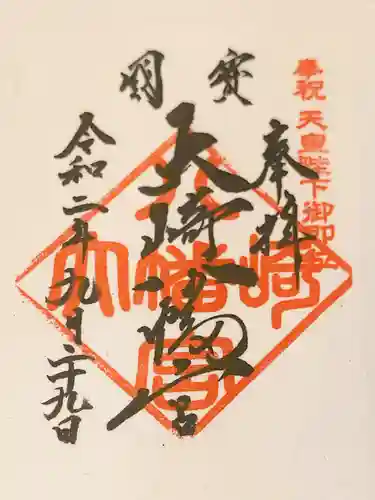 奉祝 天皇陛下御即位
奉拝
國寶
大崎八幡宮
大崎八幡宮
令和二年九月二十九日